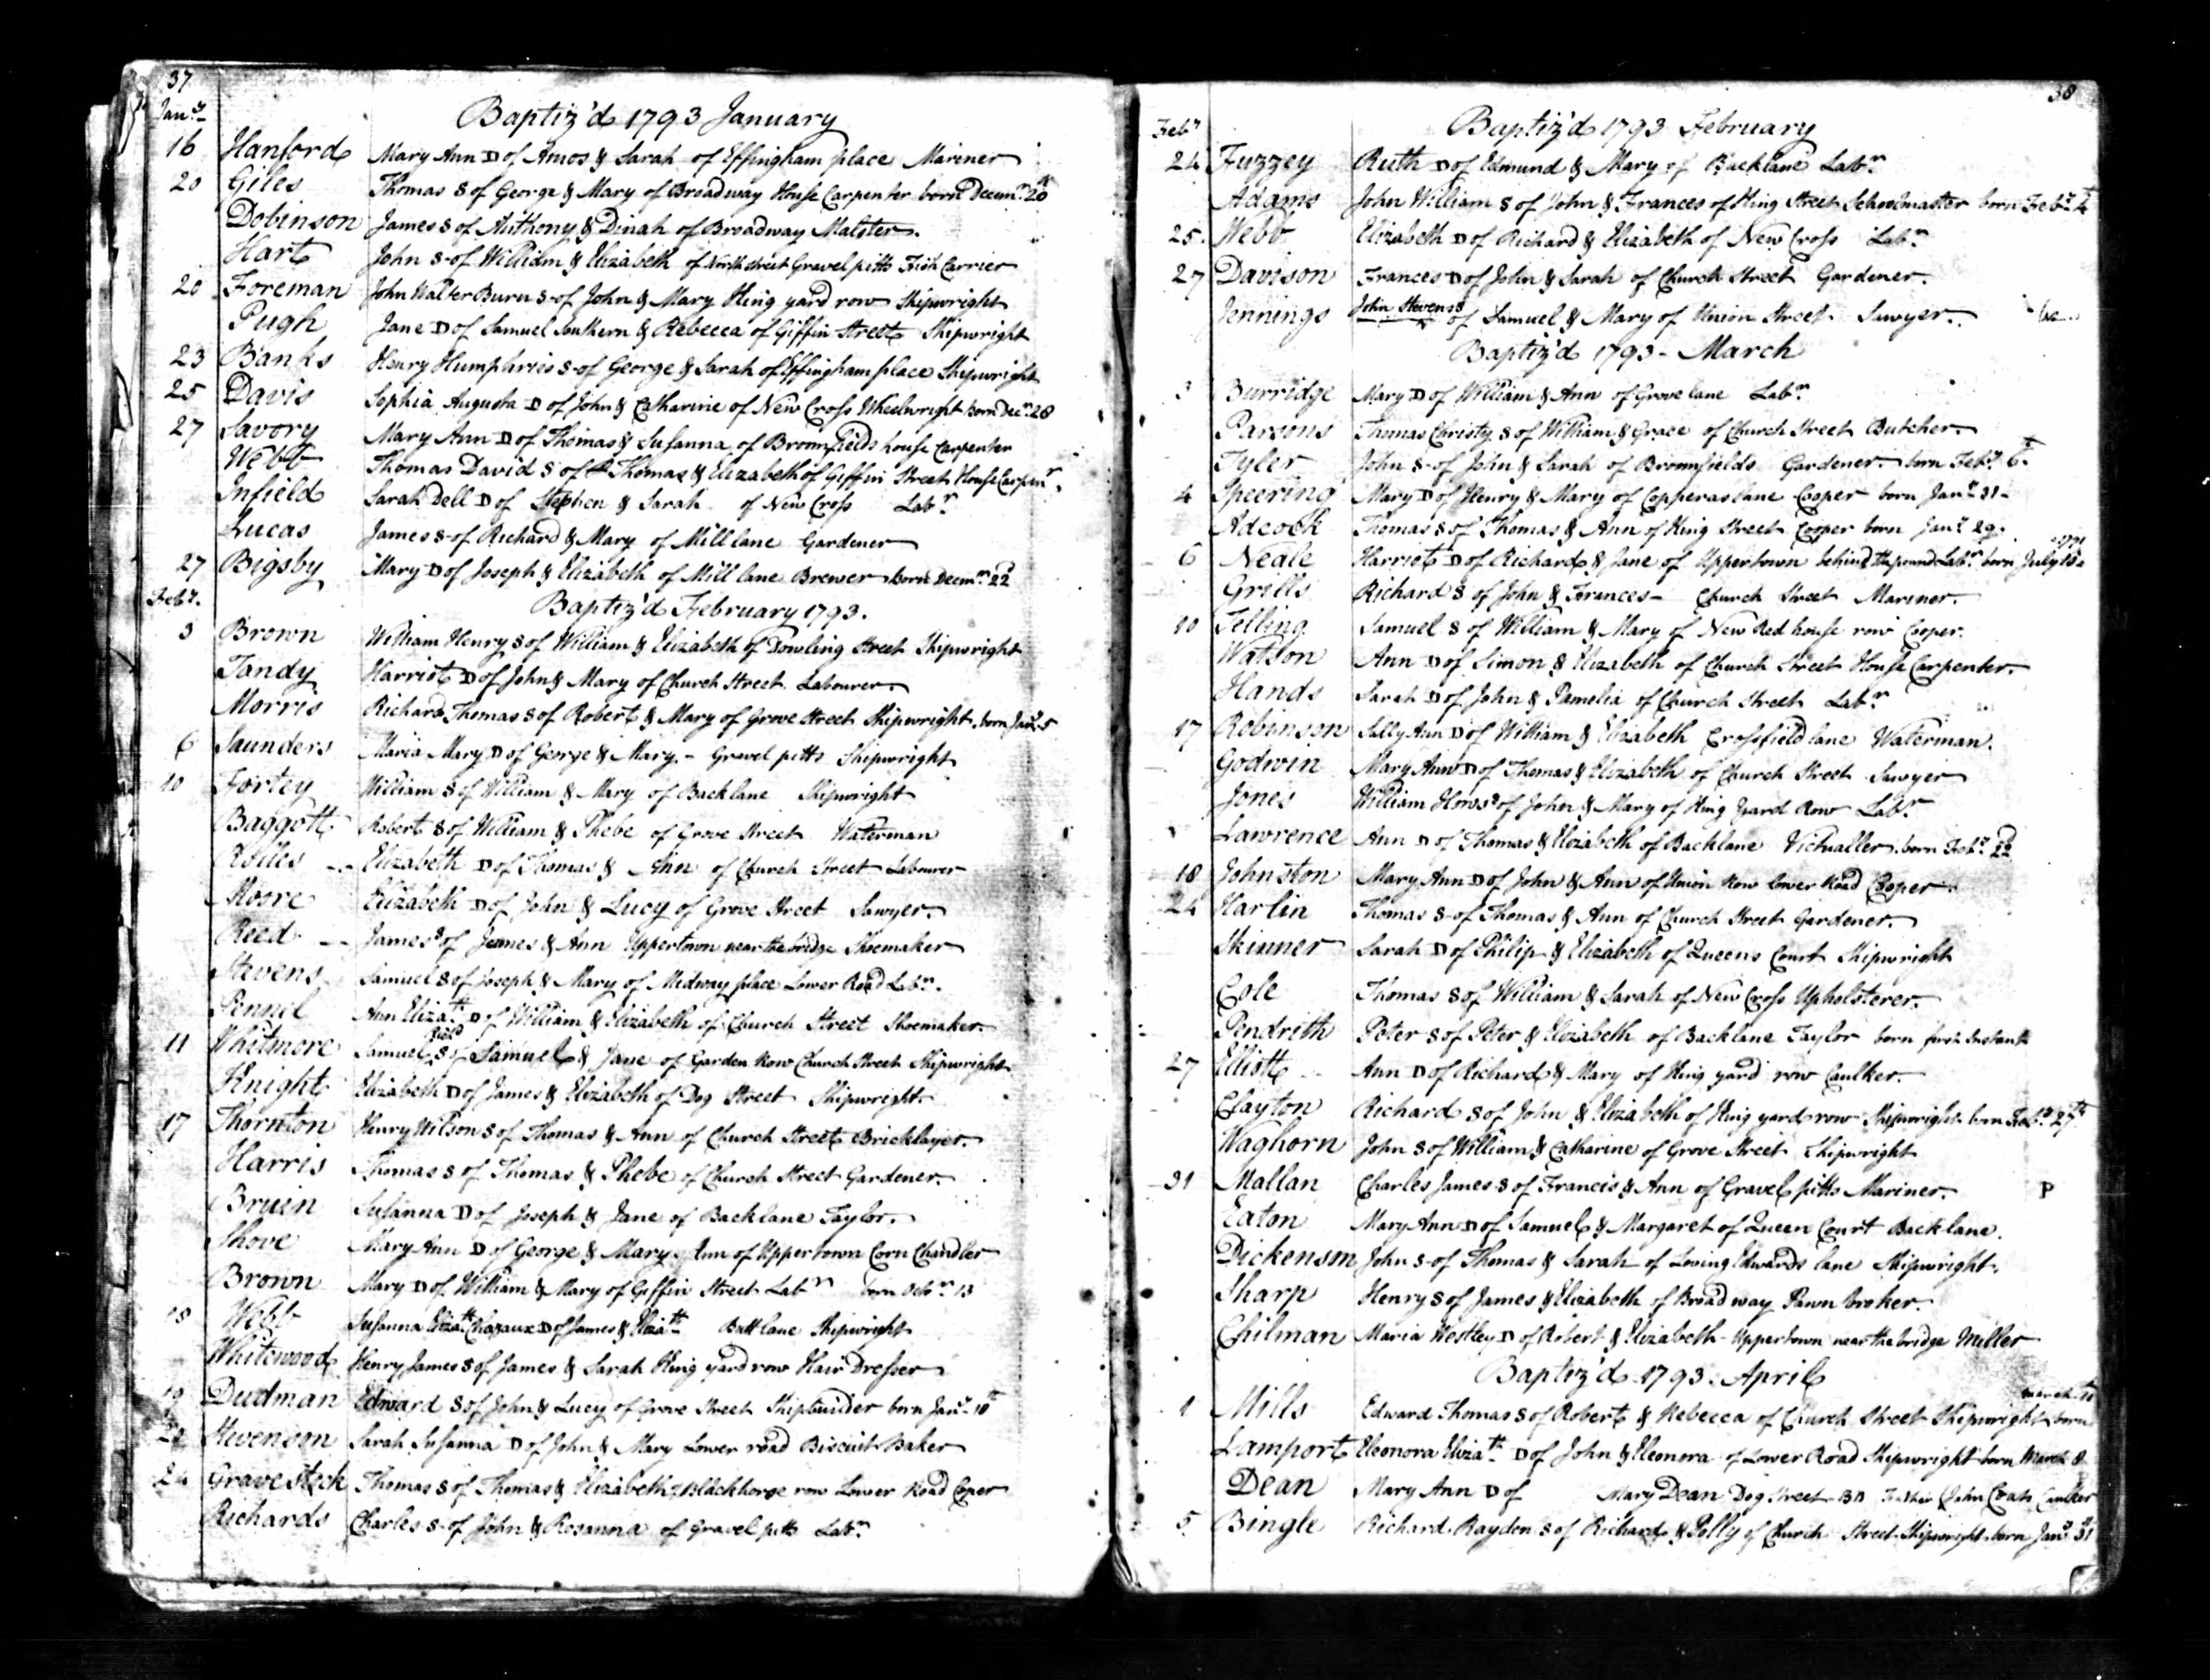 37
Jan.y
Baptiz'd 1793 January
16 Hanford Mary Ann D of Amos & Sarah of Effingham place Mariner
20 Giles Thomas S of George & Mary of Broadway House Carpenter born Decemr. 20th
Dobinson James S of Anthony & Dinah of Broadway Malster.
Hart John S of William & Elizabeth of North street Gravel pitts Fish Carrier
20 Foreman John Walter Burn S of John & Mary King yard row Shipwright
Pugh Jane D of Samuel Southern & Rebecca of Giffin Street Shipwright
23 Banks Henry Humphries S of George & Sarah of Effingham place Shipwright
25 Davis Sophia Augusta D of John & Catharine of New Cross Wheelwright Born Decr. 28
27 Savory Mary Ann D of Thomas & Susanna of Broomfields house Carpenter
Webb Thomas David S of Thomas & Elizabeth of Giffin Street House Carpenr.
Infield Sarah Dell D of Stephen & Sarah of New Cross Labr.
Lucas James S of Richard & Mary of Mill lane Gardener
27 Bigsby Mary D of Joseph & Elizabeth of Mill lane Brewer born Decemr. 22d
Feby.
Baptiz'd February 1793.
3 Brown William Henry S of William & Elizabeth of Dowling Street Shipwright
Tandy Harriot D of John & Mary of Church Street Labourer.
Morris Richard Thomas S of Robert & Mary of Grove Street Shipwright born Jany. 5
6 Saunders Maria Mary D of George & Mary. - Gravel pitts Shipwright
10 Fortey William S of William & Mary of Backlane Shipwright
Baggott Robert S of William & Phebe of Grove Street Waterman
Elizabeth D of Thomas & Ann of Church Street Labourer
Moore Elizabeth D of John & Lucy of Grove Street Sawyer.
Reed James S of James & Ann Uppertown near the bridge Shoemaker
Stevens Samuel S of Joseph & Mary of Medway place Lower Road Labr.
Pennel Ann Elizath. D of William & Elizabeth of Church Street Shoemaker.
11 Whitmore Samuel S of Samuel & Jane of Garden Row Church Street Shipwright
Knight Elizabeth D of James & Elizabeth of Dog Street Shipwright.
17 Thornton Henry Wilson S of Thomas & Ann of Church Street Bricklayer.
Harris Thomas S of Thomas & Phebe of Church Street Gardener.
Bruin Susanna D of Joseph & Jane of Backlane Taylor.
Shove Mary Ann D of George & Mary Ann of Uppertown Corn Chandler
Brown Mary D of William & Mary of Giffin Street Labr. born Octr. 13
18 Webb Susanna Elizath. D of James & Elizath. Buttlane Shipwright
Whitewood Henry James S of James & Sarah King yard row Hair Dresser
19 Dudman Edward S of John & Lucy of Grove Street Shipbuilder born Jany. 18th
Stevenson Sarah Susanna D of John & Mary Lower road Biscuit Baker
24 Gravestock Thomas S of Thomas & Elizabeth of Blackhorse row Lower Road Coper
Richards Charles S of John & Rosanna of Gravel pitts Labr.
38
Feby.
Baptiz'd 1793 February
24 Fuzzey Ruth D of Edmund & Mary of Backlane Labr.
Adams John William S of John & Frances of King Street Schoolmaster born Feby. 4th
25. Webb Elizabeth D of Richard & Elizabeth of New Cross Labr.
27 Davison Frances D of John & Sarah of Church Street Gardener.
Jennings John Stevens S of Samuel & Mary of Union Street. Sawyer.
Baptiz'd 1793 - March
3 Burridge Mary D of William & Ann of Grove lane Labr.
Parsons Thomas Christy S of William & Grace of Church Street Butcher.
Tyler John S of John & Sarah of Broomfields Gardener. born Feby. 6th.
4 Speering Mary D of Henry & Mary of Copperas lane Cooper born Jany. 31 -
Adcock Thomas S of Thomas & Ann of King Street Cooper born Jany. 29.
6 Neale Harriot D of Richard & Jane of Uppertown behind the pound Labr. born July 18. 1791
Grills Richard S of John & Frances - Church Street Mariner.
10 Telling Samuel S of William & Mary of New Red house row Cooper.
Watson Ann D of Simon & Elizabeth of Church Street House Carpenter.
Hands Sarah D of John & Pamelia of Church Street Labr.
17 Robinson Sally Ann D of William & Elizabeth Crossfield lane Waterman.
Godwin Mary Ann D of Thomas & Elizabeth of Church Street Sawyer
Jones William How S of John & Mary of King Yard Row Labr.
Lawrence Ann D of Thomas & Elizabeth of Backlane Victualler. born Feby. 22d
18 Johnston Mary Ann D of John & Ann of Union Row Lower Road Cooper.
24 Harlin Thomas S of Thomas & Ann of Church Street Gardener.
Skinner Sarah D of Philip & Elizabeth of Queens Court Shipwright
Cole Thomas S of William & Sarah of New Cross Upholsterer.
Pendrith Peter S of Peter & Elizabeth of Backlane Taylor born first Instant
27 Elliott Ann D of Richard & Mary of King yard row Caulker.
Clayton Richard S of John & Elizabeth of King yard row Shipwright born Feby. 27th
Waghorn John S of William & Catharine of Grove Street Shipwright
31 Mallan Charles James S of Francis & Ann of Gravel pitts Mariner. P
Eaton Mary Ann D of Samuel & Margaret of Queen Court Backlane.
Dickenson John S of Thomas & Sarah of Loving Edwards lane Shipwright.
Sharp Henry S of James & Elizabeth of Broadway Pawn broker.
Chilman Maria Westley D of Robert & Elizabeth Uppertown near the bridge Miller
Baptiz'd 1793. April
1 Mills Edward Thomas S of Robert & Rebecca of Church Street Shipwright born March 10
Lamport Eleonora Elizath. D of John & Eleonora of Lower Road Shipwright born March 8
Dean Mary Ann D of Mary Dean Dog Street BB Father John Caulker
5 Bingle Richard Rayden S of Richard & Polly of Church Street Shipwright born Jany. 31